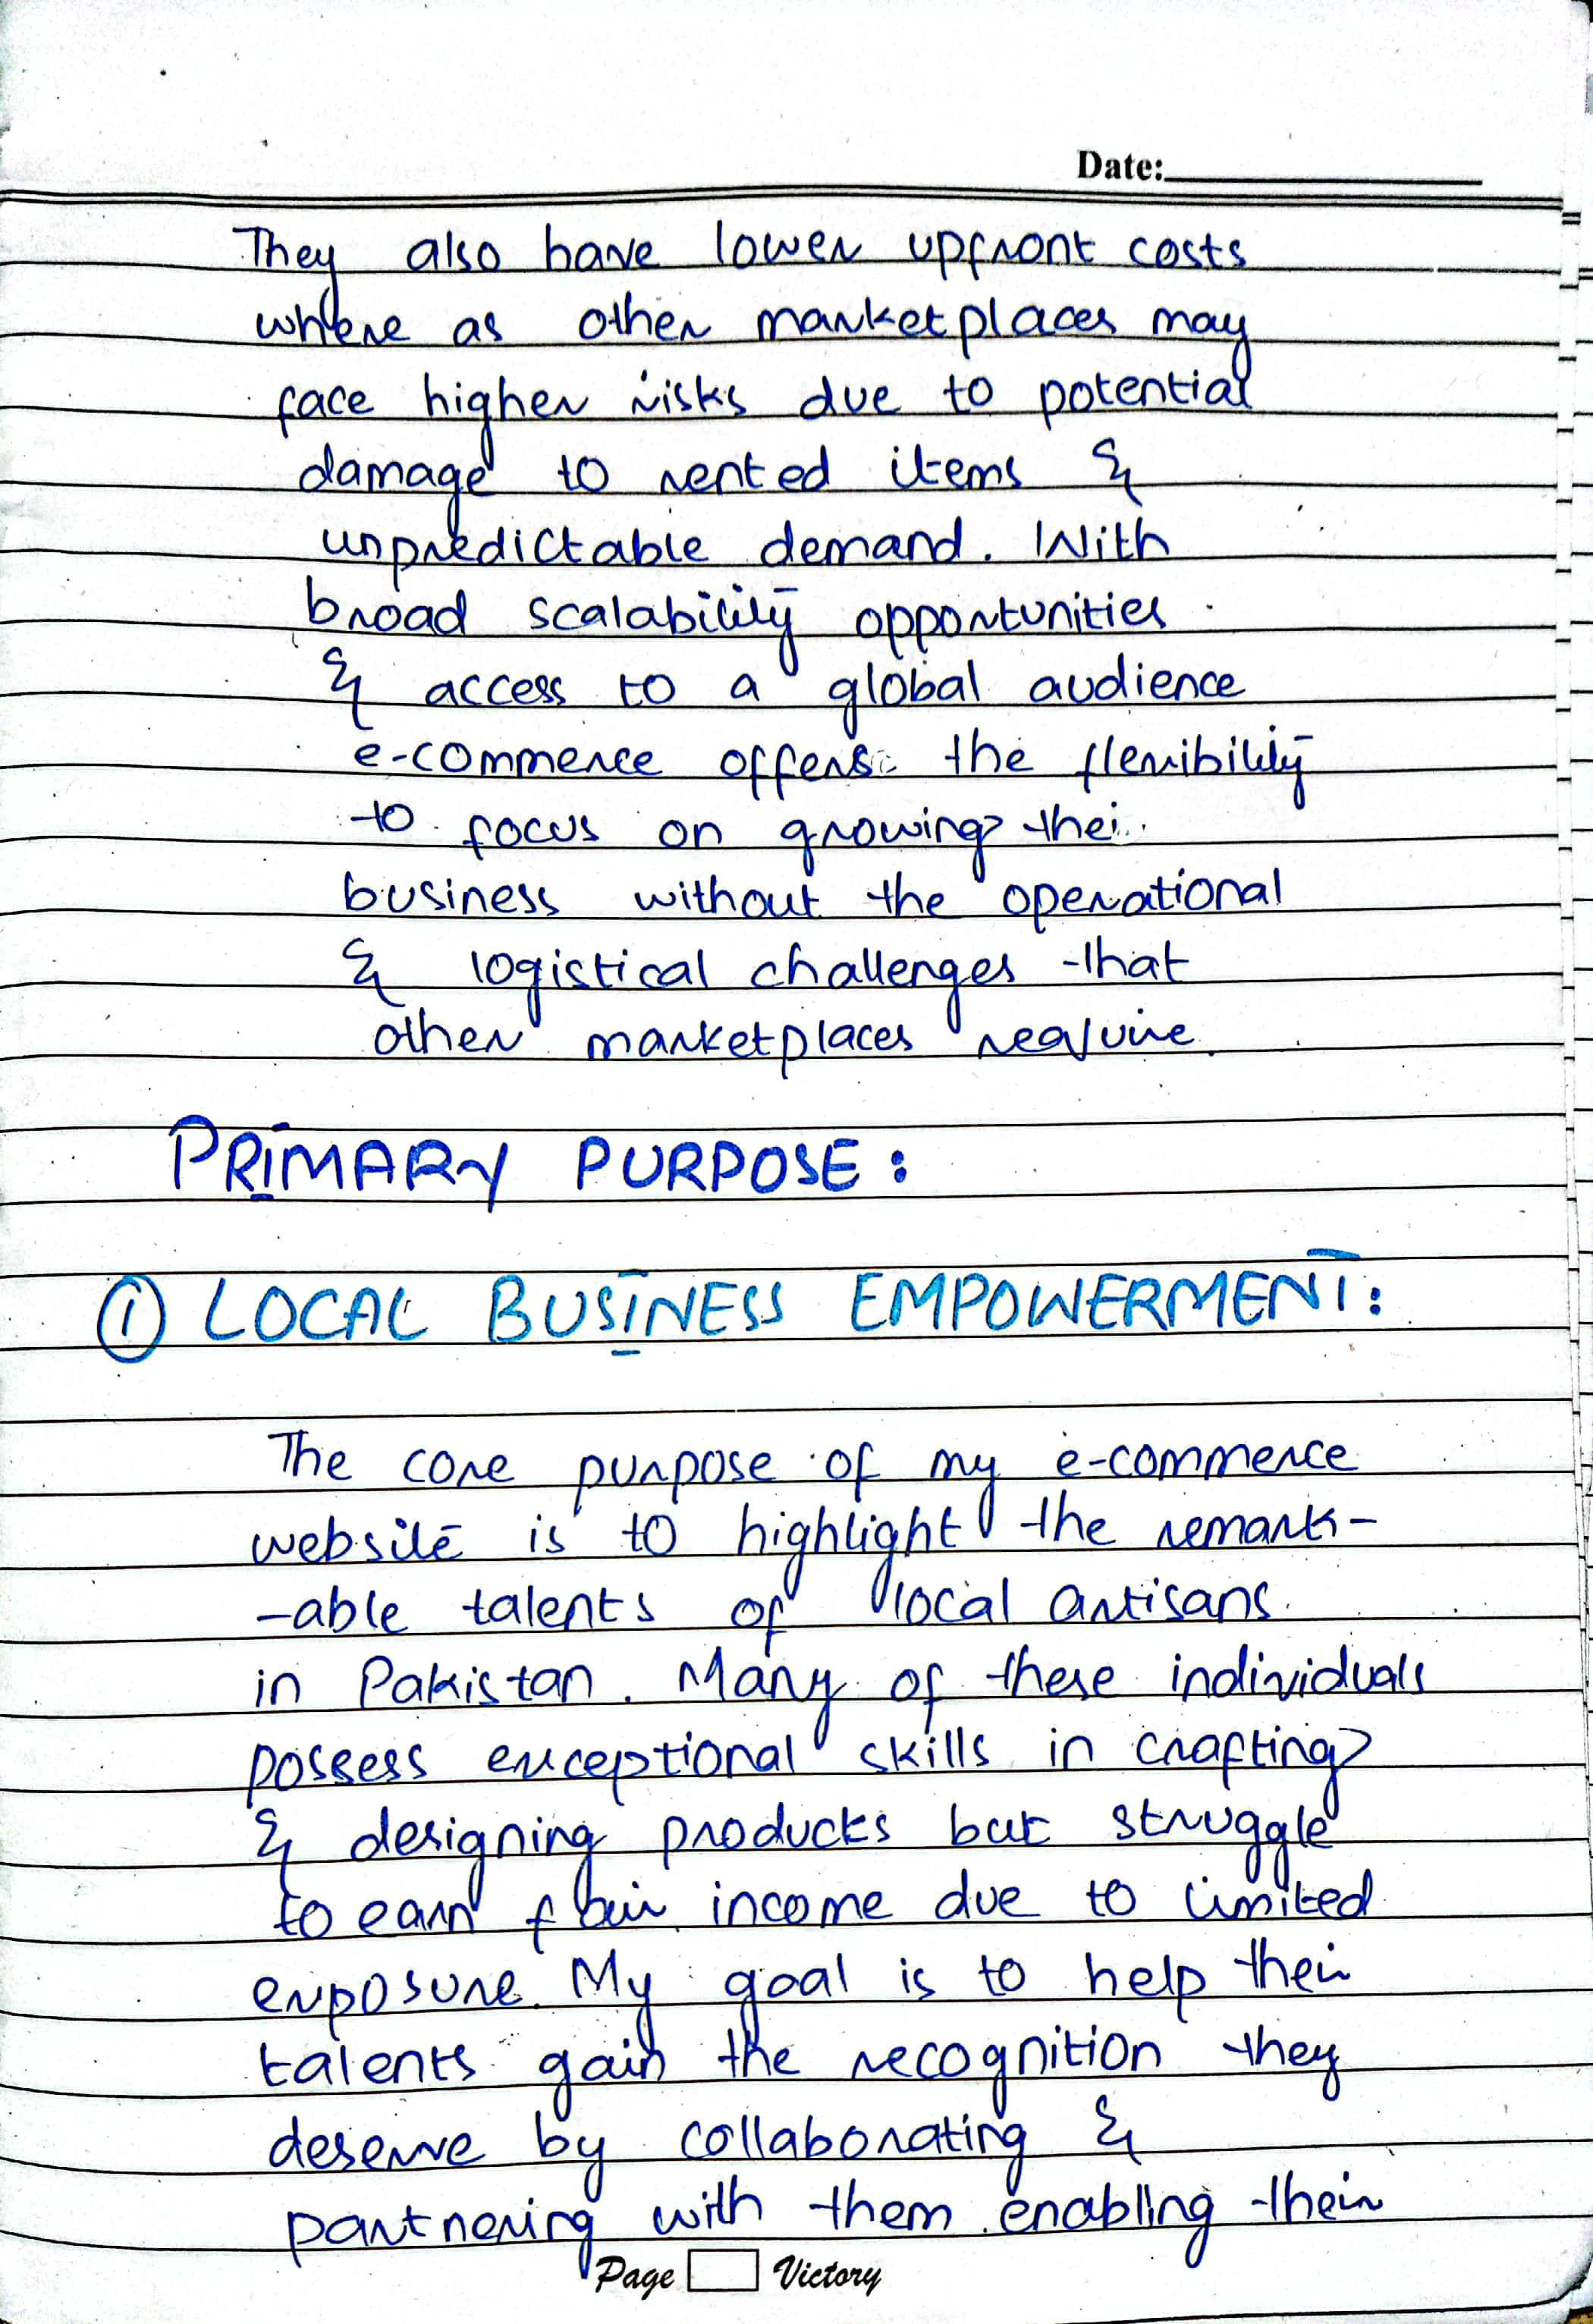 Date:
They also have lower upfront costs
where as other marketplaces may
face higher risks due to potential
damage to rented items &
unpredictable demand. With
broad scalability opportunities
& access to a global audience
e-commerce offers the flexibility
to focus on growing thei
business without the operational
& logistical challenges that
other marketplaces require.
PRIMARY PURPOSE:
① LOCAL BUSINESS EMPOWERMENT:
The core purpose of my e-commerce
website is to highlight the remark-
-able talents of local artisans
in Pakistan. Many of these individuals
possess exceptional skills in crafting
& designing products but struggle
to earn fair income due to limited
exposure. My goal is to help their
talents gain the recognition they
deserve by collaborating &
partnering with them enabling their
Page Victory